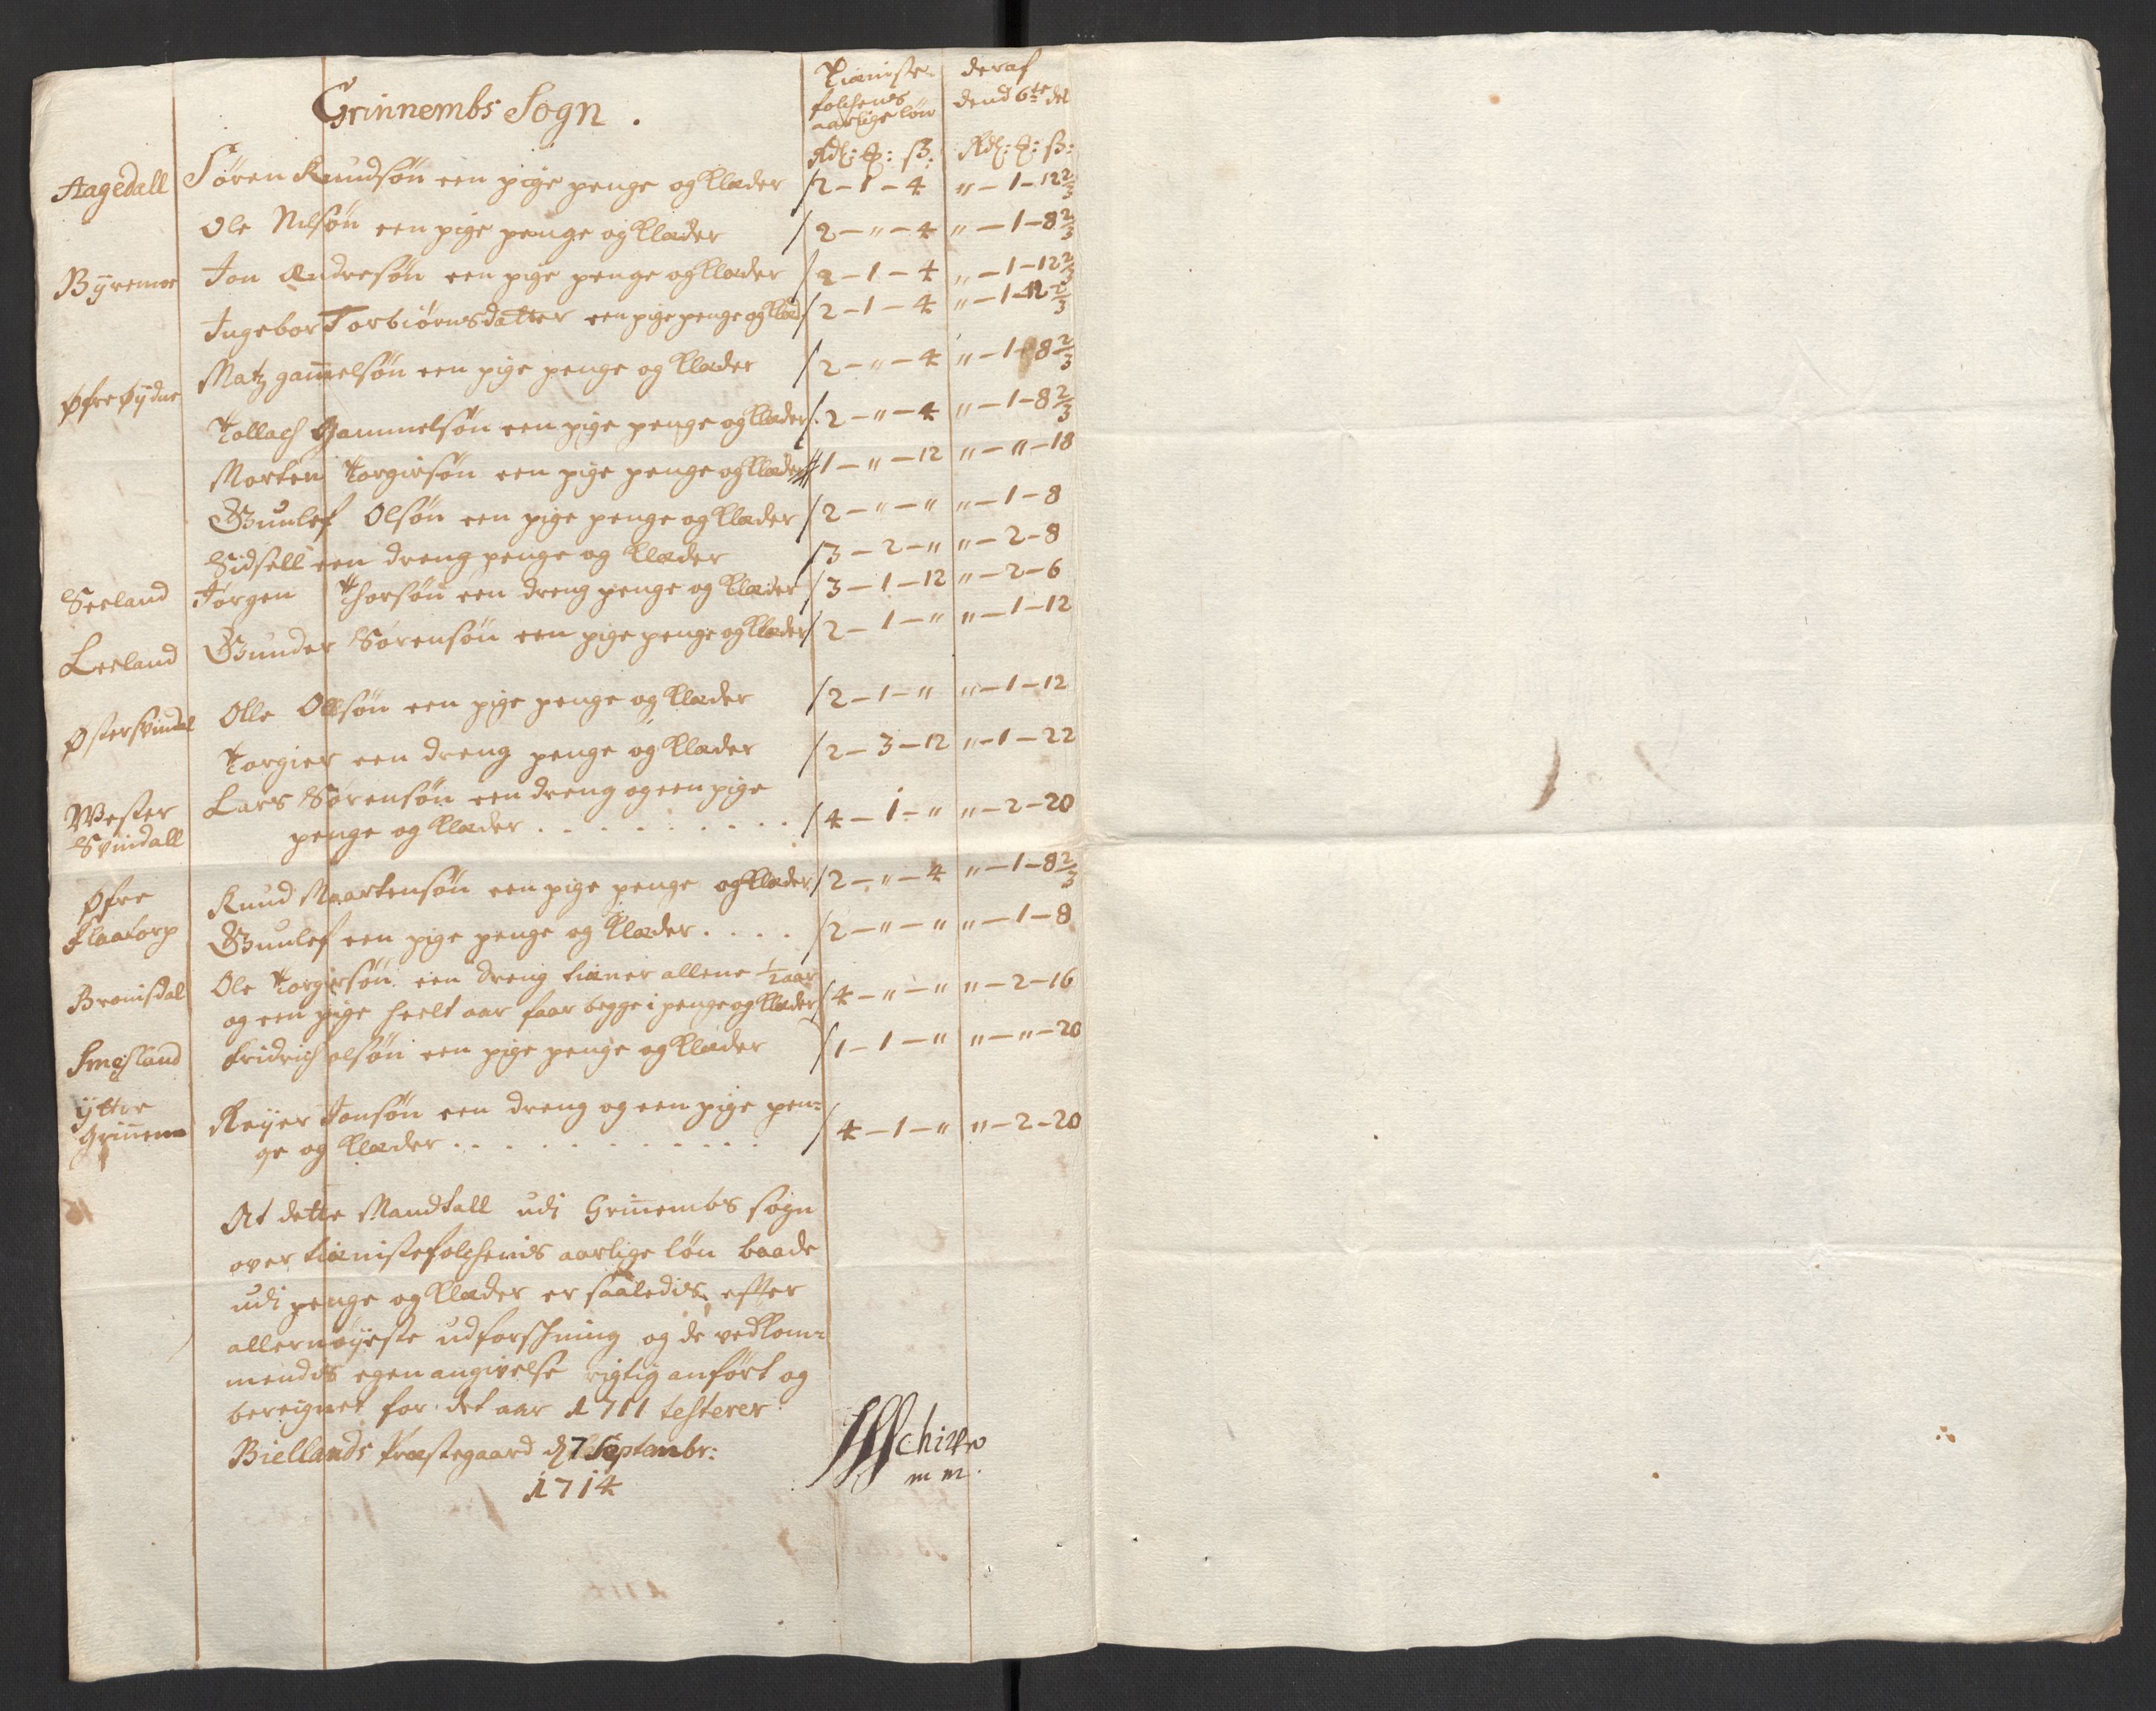 Grinnembs Sogn.
Tieniste- deraf
folchens dend 6te del
aarlige løn
Rdl: ß: Rdl: ß:
Aagedall Søren Knudsøn een pige penge og Klæder 2-1-4 "-1-12 2/3
Ole Nilsøn een pige penge og Klæder 2-"-4 "-1-8 2/3
Byremoe Jon Andresøn een pige penge og Klæder 2-1-4 "-1-12 2/3
Ingebor Torbiørnsdatter een pige penge og Klæd: 2-1-4 "-1-12 2/3
Øfre Øydne Matz gam̄elsøn een pige penge og Klæder 2-"-4 "-1-8 2/3
Tollach Gammelsøn een pige penge og Klæder 2-"-4 "-1-8 2/3
Morten Torgirsøn een pige penge og Klæder 1-"-12 "-"-18
Gunlef Olsøn een pige penge og Klæder 2-"-" "-1-8
Sidsell een dreng penge og Klæder 3-2-" "-2-8
Seeland Jørgen Thorsøn een dreng penge og Klæder 3-1-12 "-2-6
Leeland Gunder Sørensøn een pige penge og Klæder 2-1-" "-1-12
Østersvindal Olle Olsøn een pige penge og Klæder 2-1-" "-1-12
Torgier een dreng penge og Klæder 2-3-12 "-1-22
Wester Lars Sørensøn een dreng og een pige
Svindall penge og Klæder 4-1-" "-2-20
Øfre Knud Maartensøn een pige penge og Klæder 2-"-4 "-1-8 2/3
Flaatorp Gunlef een pige penge og Klæder 2-"-" "-1-8
Bronisdal Ole Torgirsøn een dreng tiener allene 1/2 aar
og een pige heelt aar faar begge i penge og Klæder 4-"-" "-2-16
Smesland fridrich olsøn een pige penge og Klæder 1-1-" "-"-20
ÿttre Reyer Jonsøn een dreng og een pige pen=
Grin̄em ge og Klæder 4-1-" "-2-20
At dette Mandtall udi Grin̄embs sogn
over tienistefolchenis aarlige løn baade
udi penge og Klæder er saaledis efter
allernøyeste udforschning og de vedkom=
mendis egen angivelse rigtig anført og
bereignet for det aar 1711 testerer
Biellands Præstegaard d 7 Septembr:
1714
mm.